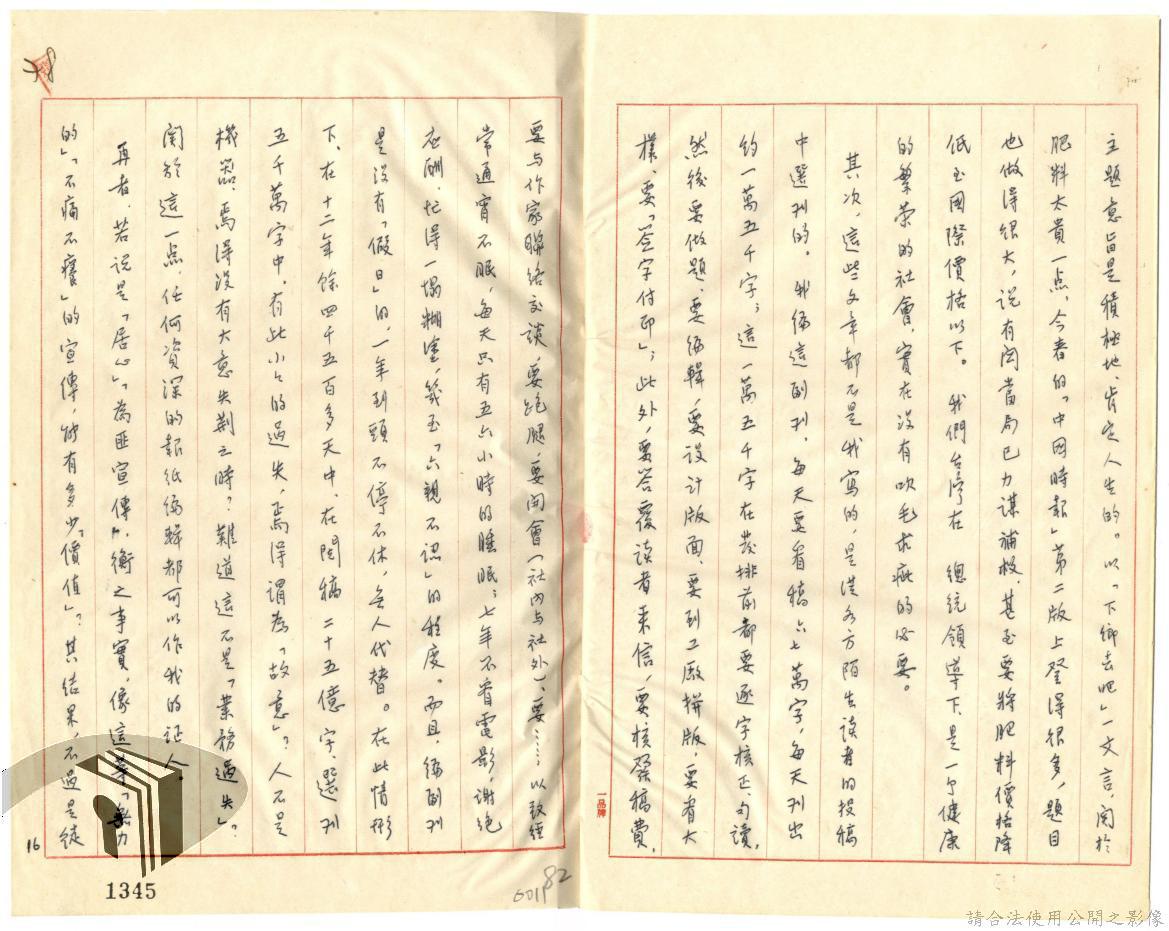 主題意旨是積極地、肯定人生的。以「下鄉去吧」一文言，関於
肥料太貴一点，今春的「中国時報」第二版上登得很多，題目
也做得很大，説有関當局已力謀補救，甚至要將肥料價格降
低至國際價格以下。我們台湾在　總統領導下是一个健康
的繁荣的社會，實在没有吹毛求疵的必要。
其次，這些文章都不是我寫的，是從各方陌生読者的投稿
中選刊的。我編這副刊，每天要看稿六七萬字，每天刊出
約一萬五千字；這一萬五千字在發排前都要逐字核正、句讀，
然後要做題、要編輯，要設計版面，要到工廠拼版，要看大
樣，要「簽字付印」；此外，要答覆読者來信，要核發稿費，
要与作家聯絡交談，要跑腿，要開會（社内与社外），要……以致經
常通宵不眠，每天只有五六小時的睡眠；七年不看電影，谢绝
应酬，忙得一塌糊塗，幾至「六親不認」的程度。而且，編副刊
是没有「假日」的，一年到頭不停不休，無人代替。在此情形
下，在十二年餘四千五百多天中，在閲稿二十五億字，選刊
五千萬字中，有此小小的過失，焉得谓為「故意」？人不是
機器，焉得没有大意失荆之時？難道這不是「業務過失」？
関於這一点，任何資深的報紙編輯都可以作我的证人。
再者，若説是「居心」「為匪宣傳」，衡之事實，像這等「無力
的」、「不痛不癢」的宣傳，能有多少「價值」？其結果，不過是徒
一品牌
16
1345
82
請合法使用公開之影像